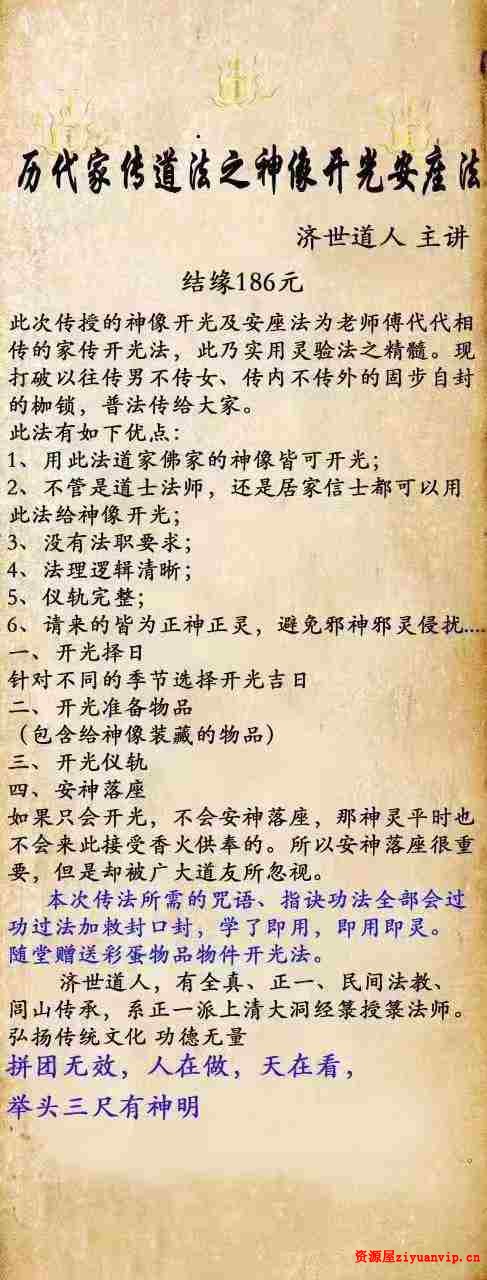 历代家传道法之神像开光安座法
济世道人 主讲
结缘186元
此次传授的神像开光及安座法为老师傅代代相
传的家传开光法，此乃实用灵验法之精髓。现
打破以往传男不传女、传内不传外的固步自封
的枷锁，普法传给大家。
此法有如下优点：
1、用此法道家佛家的神像皆可开光；
2、不管是道士法师，还是居家信士都可以用
此法给神像开光；
3、没有法职要求；
4、法理逻辑清晰；
5、仪轨完整；
6、请来的皆为正神正灵，避免邪神邪灵侵扰....
一、开光择日
针对不同的季节选择开光吉日
二、开光准备物品
（包含给神像装藏的物品）
三、开光仪轨
四、安神落座
如果只会开光，不会安神落座，那神灵平时也
不会来此接受香火供奉的。所以安神落座很重
要，但是却被广大道友所忽视。
本次传法所需的咒语、指诀功法全部会过
功过法加敕封口封，学了即用，即用即灵。
随堂赠送彩蛋物品物件开光法。
济世道人，有全真、正一、民间法教、
闾山传承，系正一派上清大洞经箓授箓法师。
弘扬传统文化 功德无量
拼团无效，人在做，天在看，
举头三尺有神明
资源屋ziyuanvip.cn